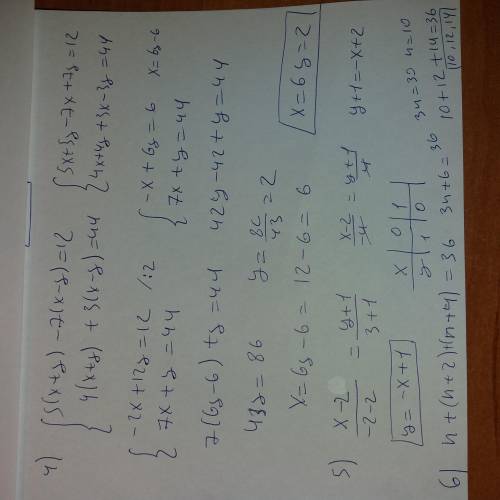 4) { 5(x+y) - 7(x-y) = 12   { 5x+5y-7x+7y=12
{ 4(x+y) + 3(x-y) = 44   { 4x+4y+3x-3y=44
{ -2x+12y=12 /:2   { -x+6y=6   x=6y-6
{ 7x+y=44   { 7x+y=44
7(6y-6)+y=44   42y-42+y=44
43y=86   y=86/43=2
x=6y-6=12-6=6   x=6 y=2
5) (x-2)/(-2-2) = (y+1)/(3+1)   (x-2)/(-4) = (y+1)/4   y+1=-x+2
y=-x+1   x | 0 | 1
y | 1 | 0
6) n+(n+2)+(n+4)=36   3n+6=36   3n=30   n=10
10+12+14=36
10, 12, 14